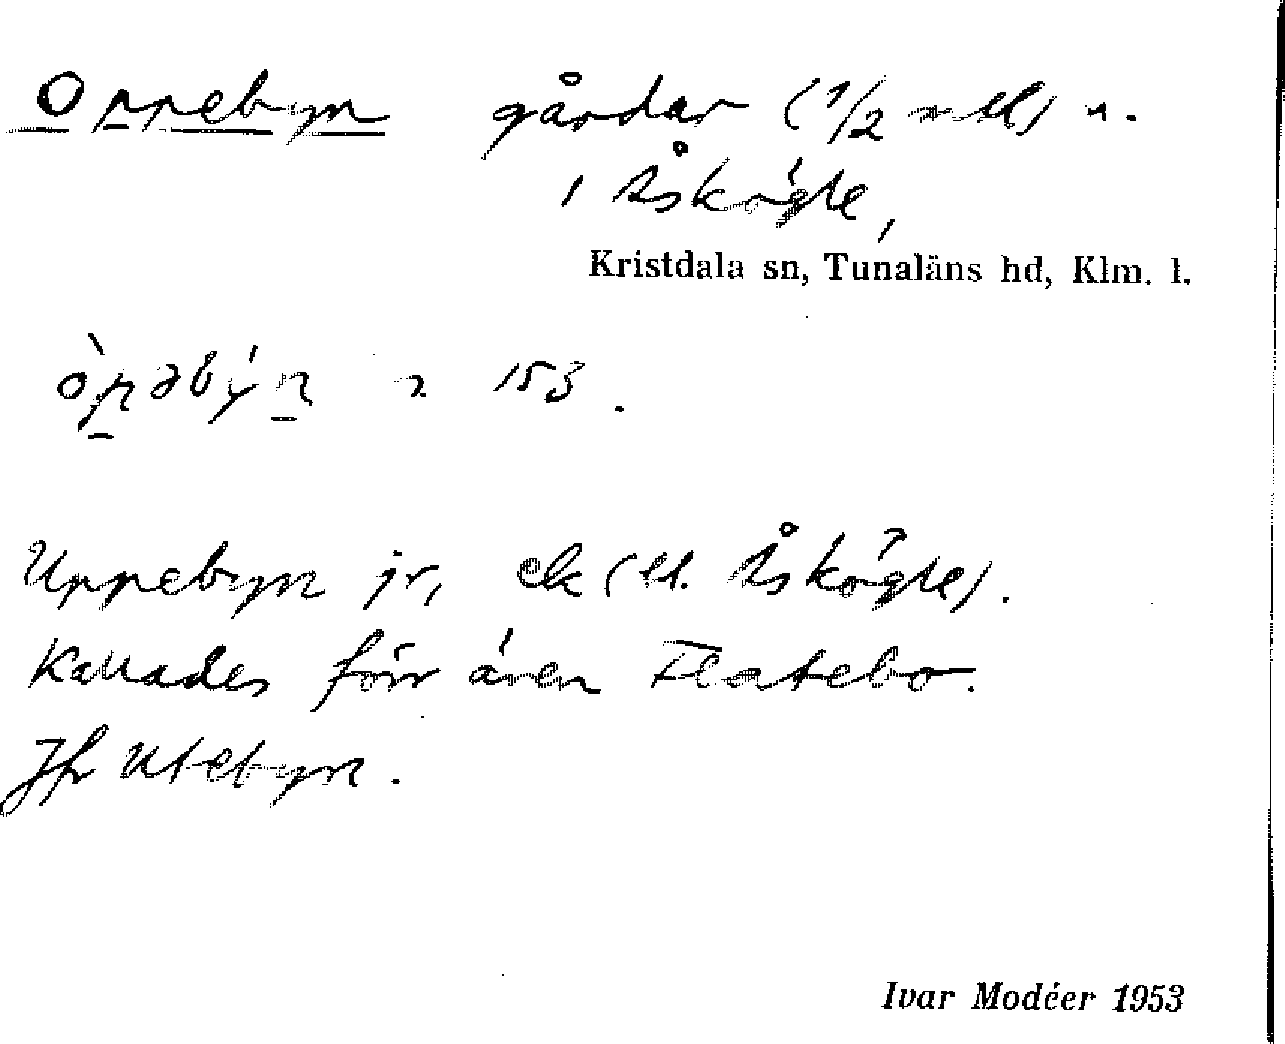 Oppebyn gårdar (1/2 mtl) n.
i Åskögle,
Kristdala sn, Tunaläns hd, Klm. l.
òp̱əbýṉ n 153.
Uppebyn jr, ek (u. Åskögle).
Kallades förr även Flatebo.
Jfr Utebyn.
Ivar Modéer 1953